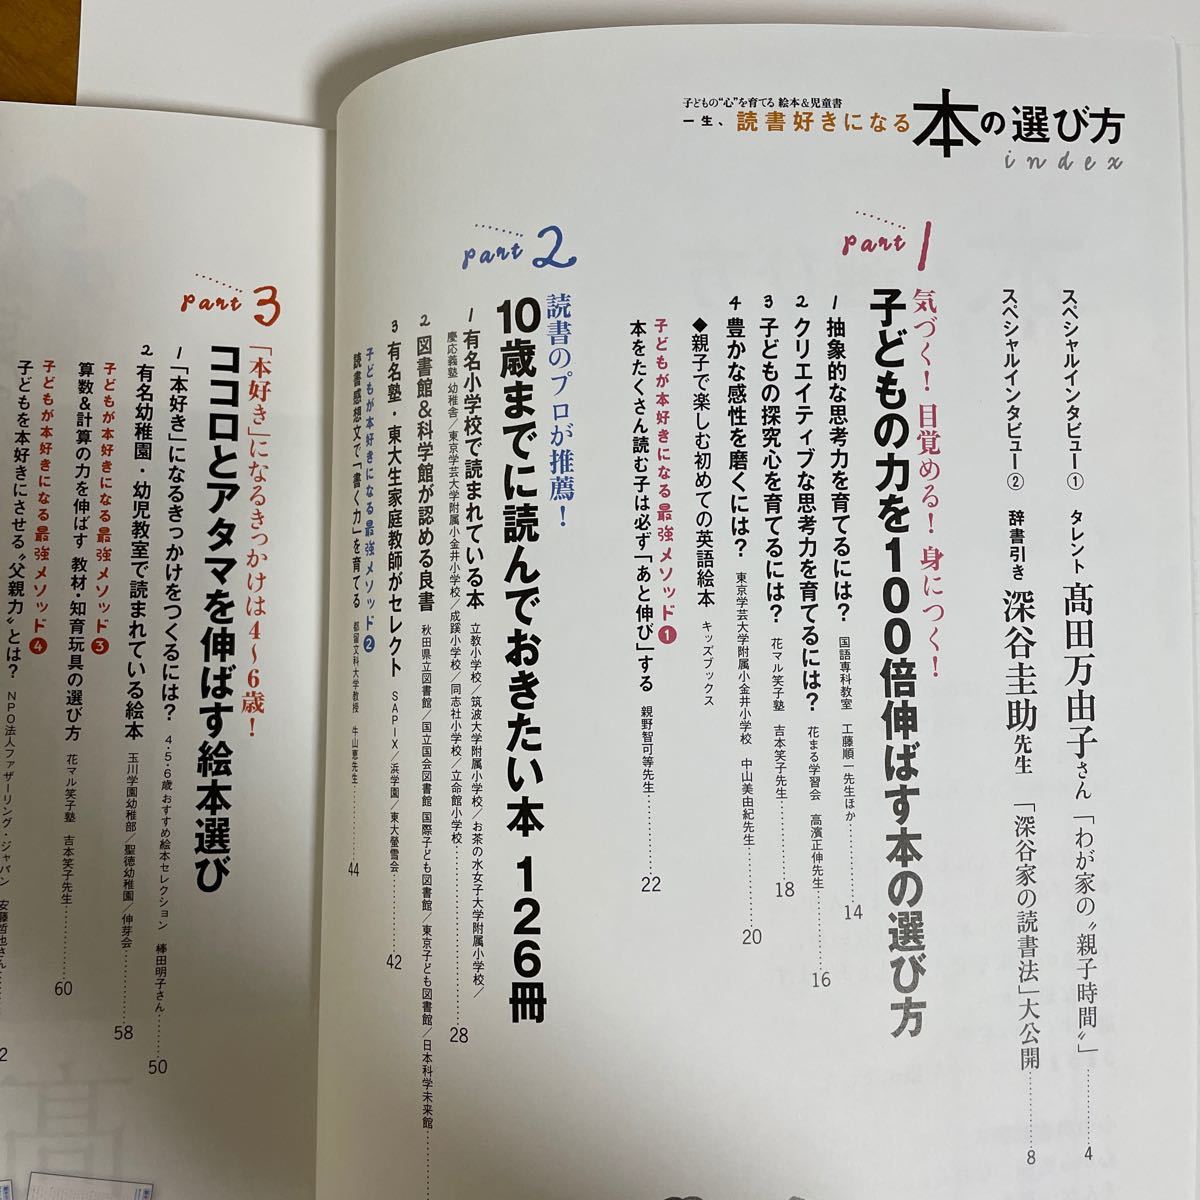 子どもの“心”を育てる 絵本&児童書
一生、読書好きになる本の選び方
index
スペシャルインタビュー① タレント 髙田万由子さん 「わが家の“親子時間”」………4
スペシャルインタビュー② 辞書引き 深谷圭助先生 「深谷家の読書法」大公開………8
part 1
気づく!目覚める!身につく!
子どもの力を100倍伸ばす本の選び方
1 抽象的な思考力を育てるには? 国語専科教室 工藤順一先生ほか………14
2 クリエイティブな思考力を育てるには? 花まる学習会 高濱正伸先生………16
3 子どもの探究心を育てるには? 花マル笑子塾 吉本笑子先生………18
4 豊かな感性を磨くには? 東京学芸大学附属小金井小学校 中山美由紀先生………20
◆親子で楽しむ初めての英語絵本 キッズブックス
子どもが本好きになる最強メソッド❶
本をたくさん読む子は必ず「あと伸び」する 親野智可等先生………22
part 2
読書のプロが推薦!
10歳までに読んでおきたい本 126冊
1 有名小学校で読まれている本 立教小学校/筑波大学附属小学校/お茶の水女子大学附属小学校/
慶応義塾 幼稚舎/東京学芸大学附属小金井小学校/成蹊小学校/同志社小学校/立命館小学校………28
2 図書館&科学館が認める良書 秋田県立図書館/国立国会図書館 国際子ども図書館/東京子ども図書館/日本科学未来館………
3 有名塾・東大生家庭教師がセレクト SAPIX/浜学園/東大螢雪会………42
子どもが本好きになる最強メソッド❷
読書感想文で「書く力」を育てる 都留文科大学教授 牛山恵先生………44
part 3
「本好き」になるきっかけは4~6歳!
ココロとアタマを伸ばす絵本選び
1 「本好き」になるきっかけをつくるには? 4・5・6歳 おすすめ絵本セレクション 棒田明子さん………50
2 有名幼稚園・幼児教室で読まれている絵本 玉川学園幼稚部/聖徳幼稚園/伸芽会………58
子どもが本好きになる最強メソッド❸
算数&計算の力を伸ばす 教材・知育玩具の選び方 花マル笑子塾 吉本笑子先生………60
子どもが本好きになる最強メソッド❹
子どもを本好きにさせる“父親力”とは? NPO法人ファザーリング・ジャパン 安藤哲也さん………2